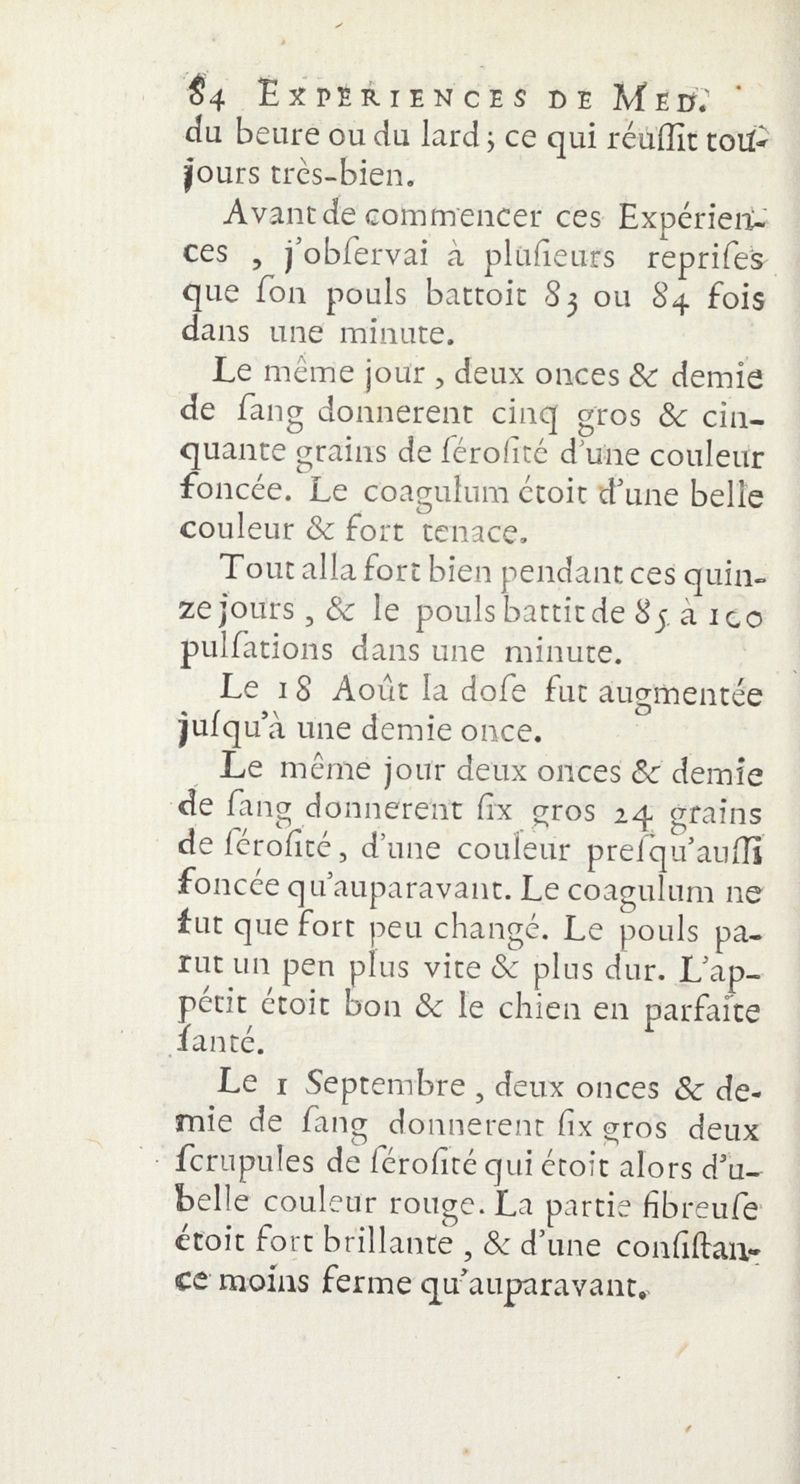 84 EXPERIENCES DE MED.
du beure ou du lard ; ce qui réuſſit tou-
jours très-bien.
Avant de commencer ces Expérien-
ces , j'obſervai à pluſieurs repriſes
que ſon pouls battoit 83 ou 84 fois
dans une minute.
Le même jour , deux onces & demie
de ſang donnerent cinq gros & cin-
quante grains de ſéroſité d'une couleur
foncée. Le coagulum étoit d'une belle
couleur & fort tenace.
Tout alla fort bien pendant ces quin-
ze jours , & le pouls battit de 85. à 100
pulſations dans une minute.
Le 18 Août la doſe fut augmentée
juſqu'à une demie once.
Le même jour deux onces & demie
de ſang donnerent ſix gros 24 grains
de ſéroſité, d'une couleur preſqu'auſſi
foncée qu'auparavant. Le coagulum ne
fut que fort peu changé. Le pouls pa-
rut un pen plus vite & plus dur. L'ap-
pétit étoit bon & le chien en parfaite
ſanté.
Le 1 Septembre , deux onces & de-
mie de ſang donnerent ſix gros deux
ſcrupules de ſéroſité qui étoit alors d'u-
belle couleur rouge. La partie fibreuſe
étoit fort brillante , & d'une conſiſtan-
ce moins ferme qu'auparavant.